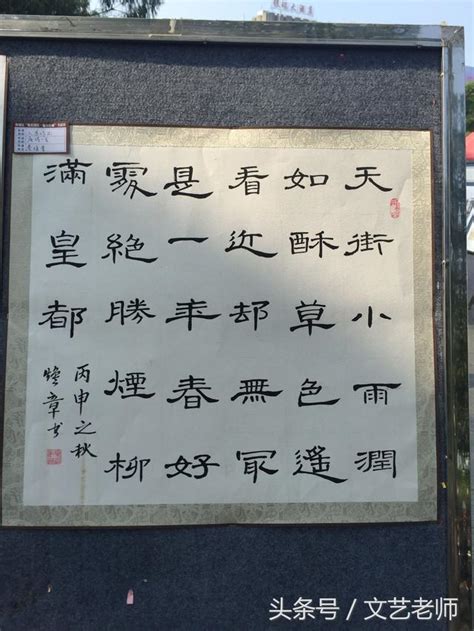 天街小雨潤
如酥草色遙
看近却無冣
是一年春好
處絕勝煙柳
滿皇都
丙申之秋
章书
头条号 / 文艺老师